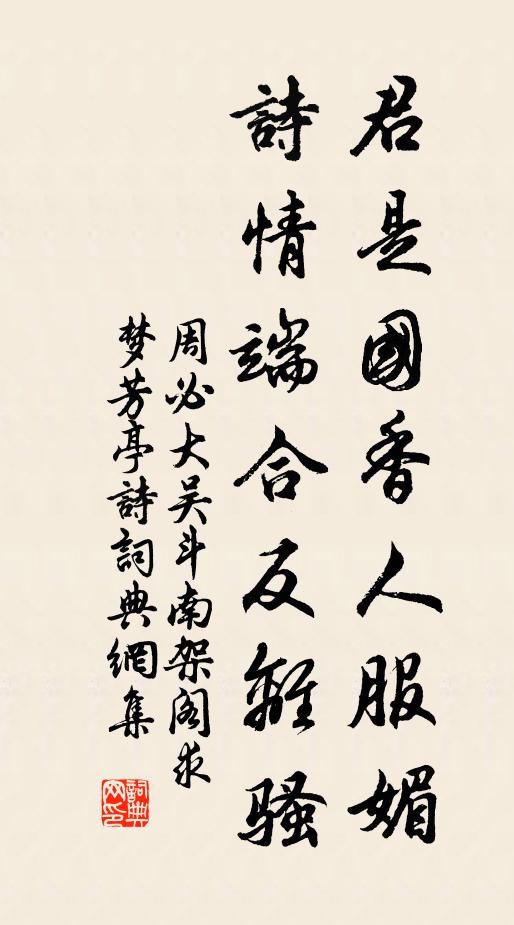 君是國香人服媚
詩情端合反離騷
周必大吴斗南架阁求
梦芳亭詩詞典網集
詞典網印